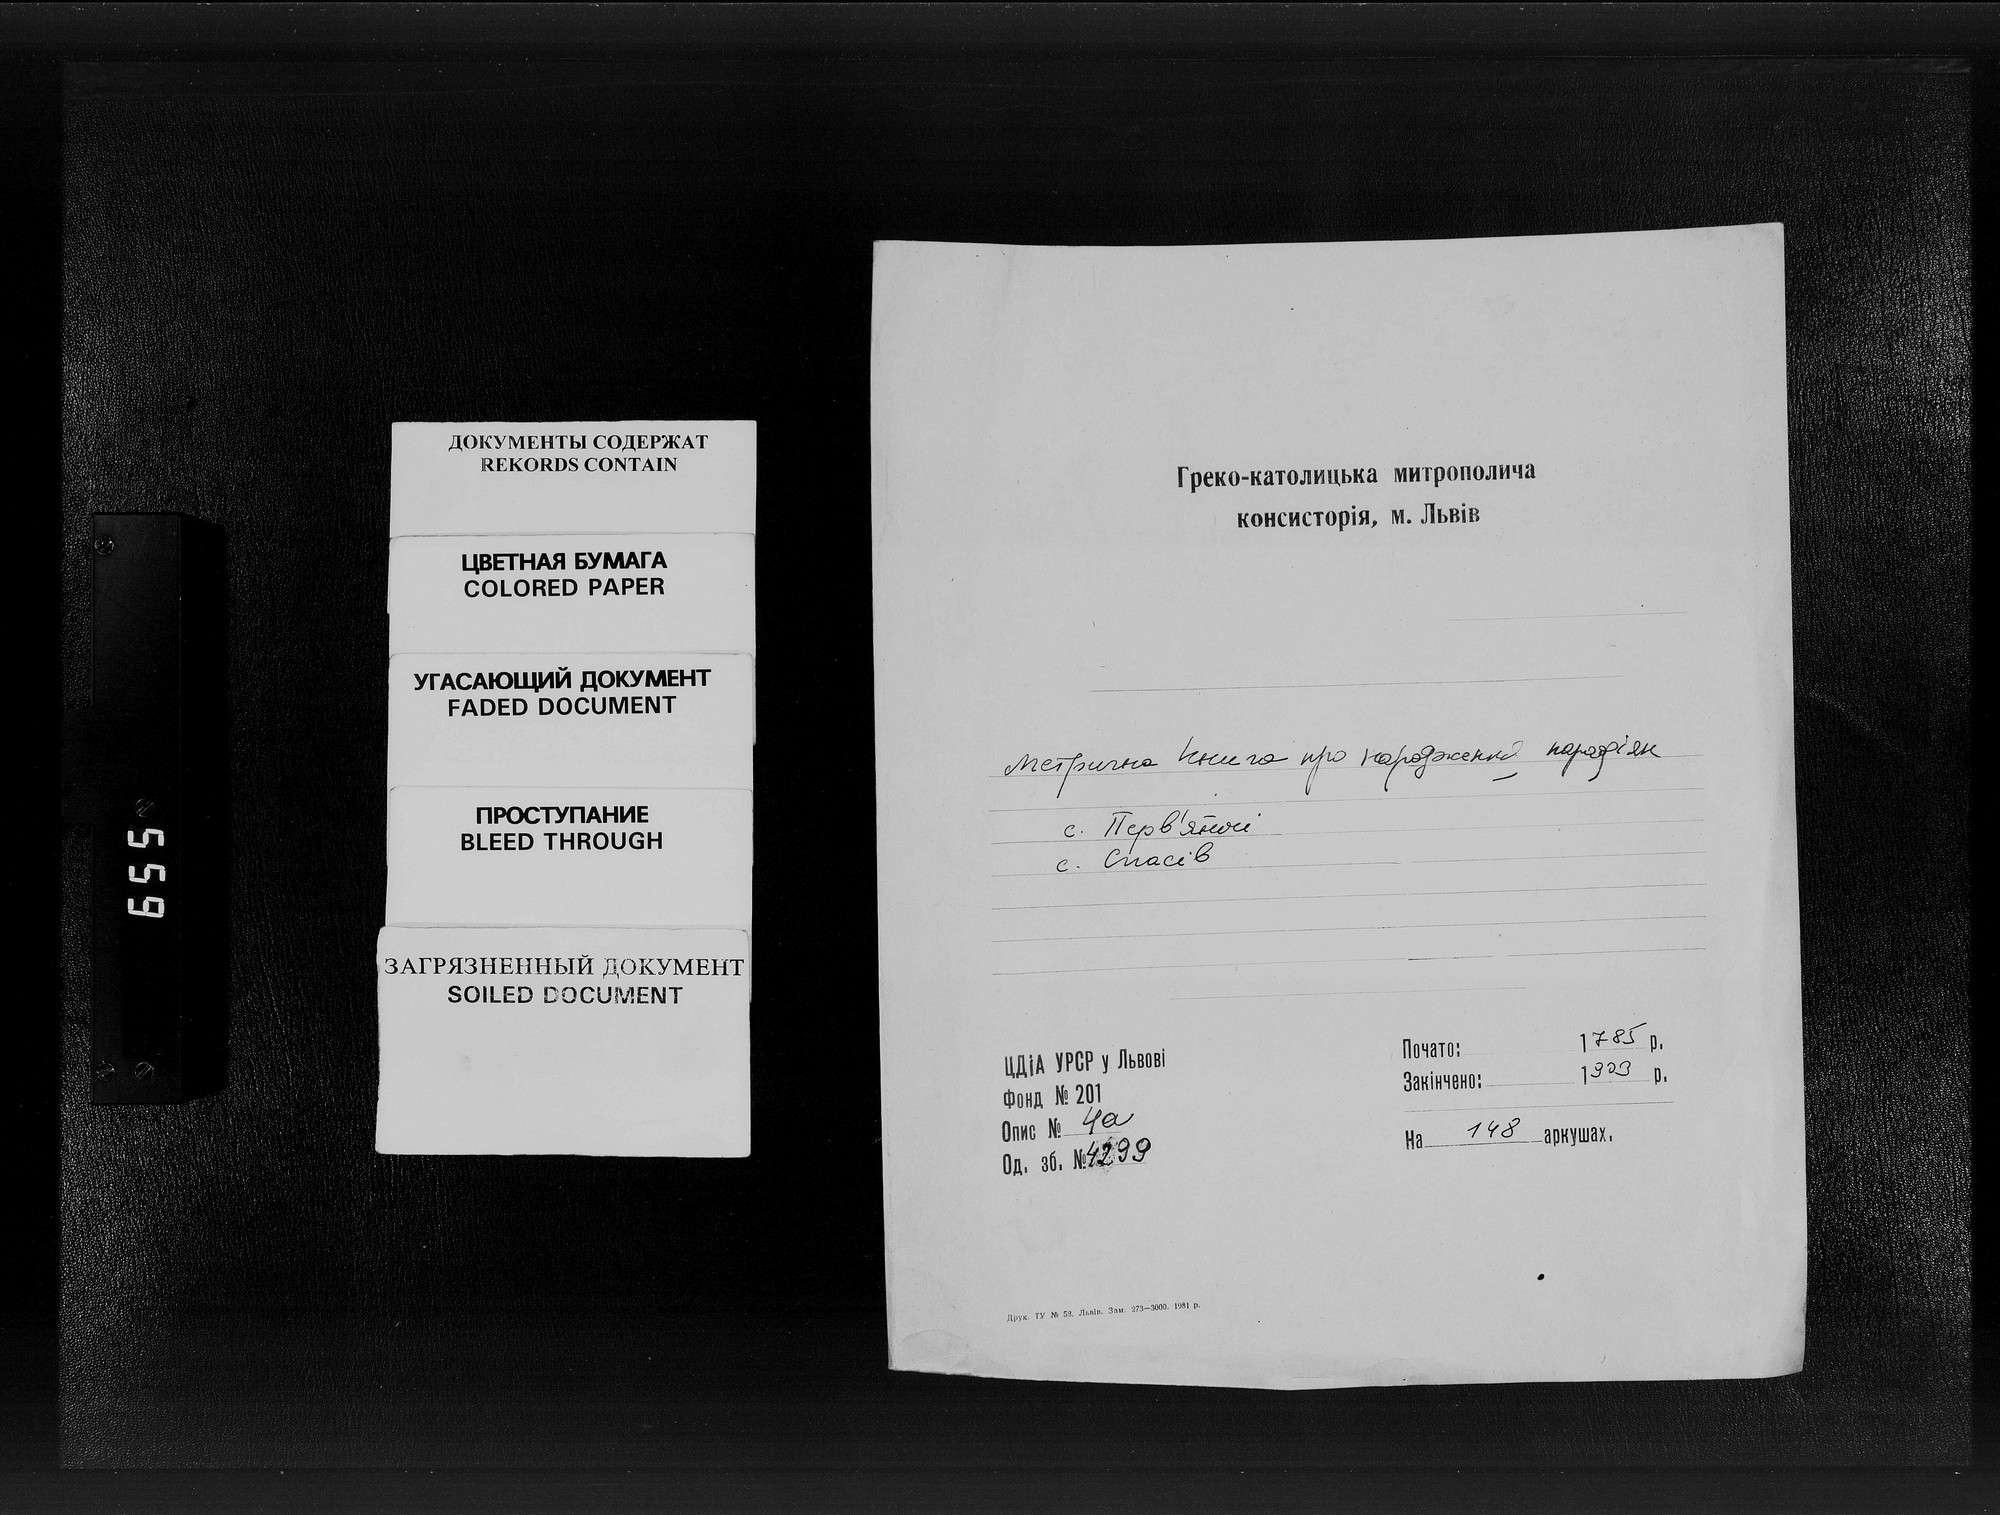 ДОКУМЕНТЫ СОДЕРЖАТ
REKORDS CONTAIN
ЦВЕТНАЯ БУМАГА
COLORED PAPER
УГАСАЮЩИЙ ДОКУМЕНТ
FADED DOCUMENT
ПРОСТУПАНИЕ
BLEED THROUGH
ЗАГРЯЗНЕННЫЙ ДОКУМЕНТ
SOILED DOCUMENT
659
Греко-католицька митрополича
консисторія, м. Львів
Метрична книга про народження парафіян
с. Перв'ятичі
с. Спасів
ЦДіА УРСР у Львові
Фонд № 201
Опис № 4а
Од. зб. № 4299
Почато: 1785 р.
Закінчено: р.
На 148 аркушах.
Друк. ТУ № 58. Львів. Зам. 273—3000. 1981 р.